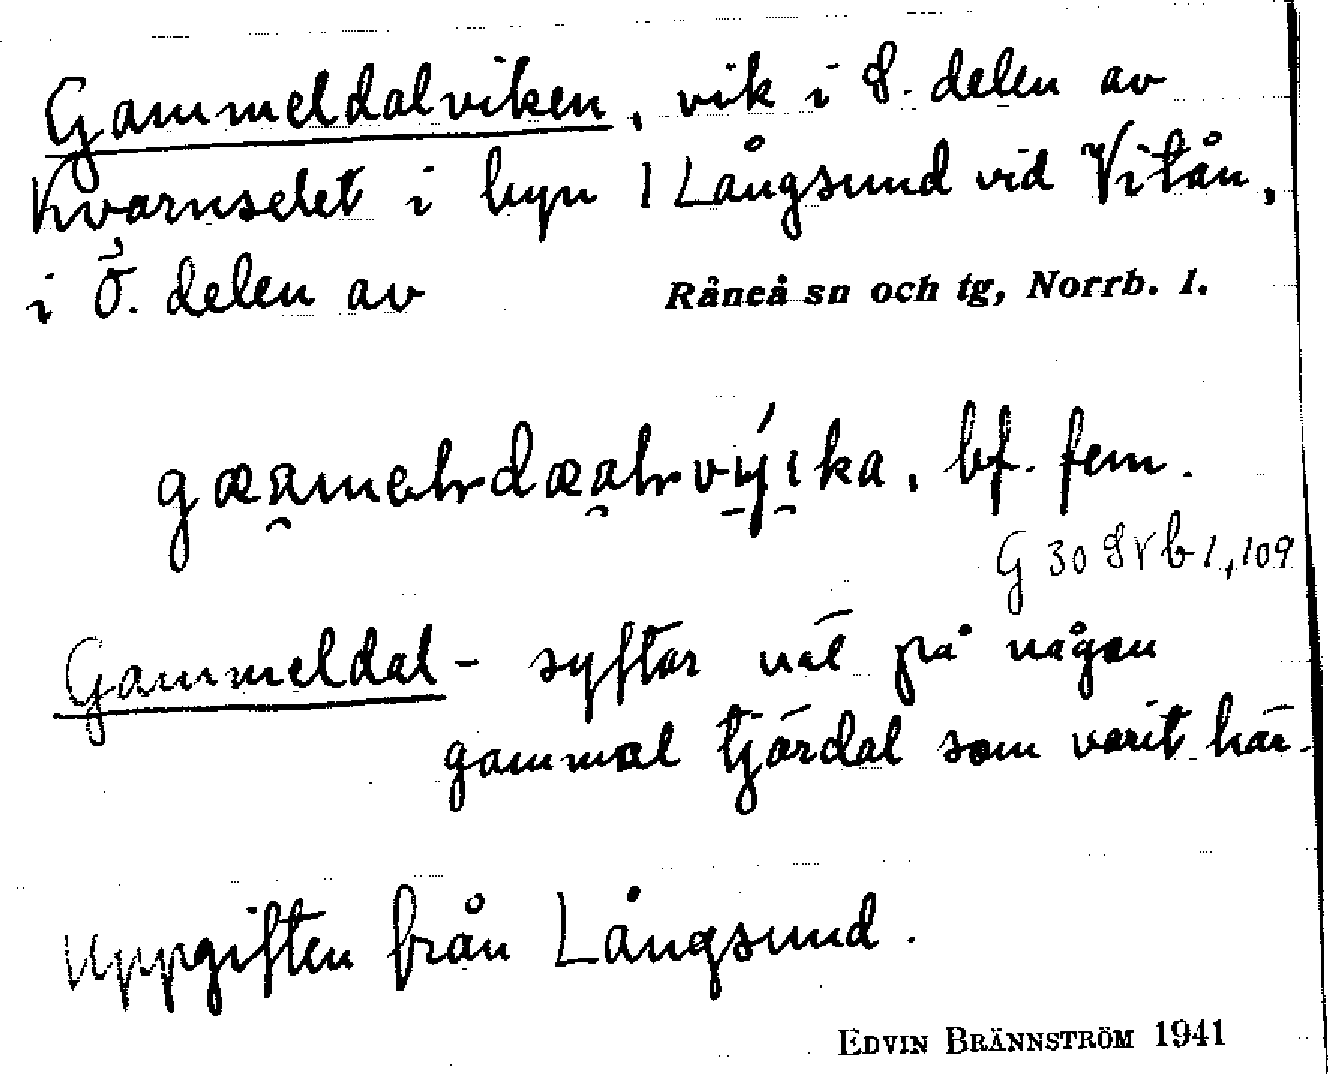 Gammeldalviken, vik i S. delen av
Kvarnselet i byn 1 Långsund vid Vitån,
i Ö. delen av Råneå sn och tg, Norrb. l.
bf. fem.
G 30 S Vb 1,109
Gammeldal- syftar väl på någon
gammal tjärdal som varit här.
Uppgiften från Långsund.
EDVIN BRÄNNSTRÖM 1941